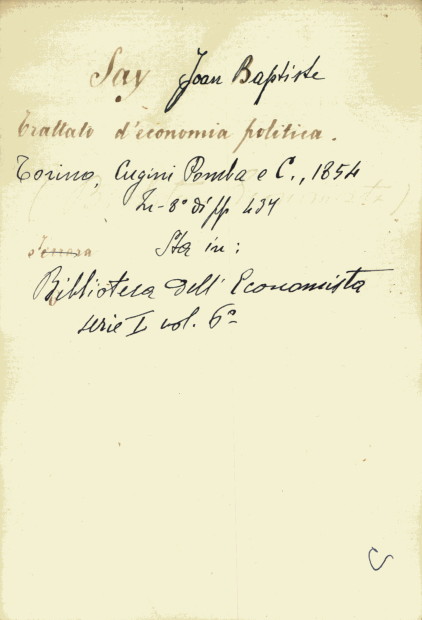 Say Joan Baptiste
Trattato d'economia politica.
Torino, Cugini Pomba e C., 1854
In-8° di pp 434
Sta in:
Biblioteca dell'Economista
serie I vol. 6°